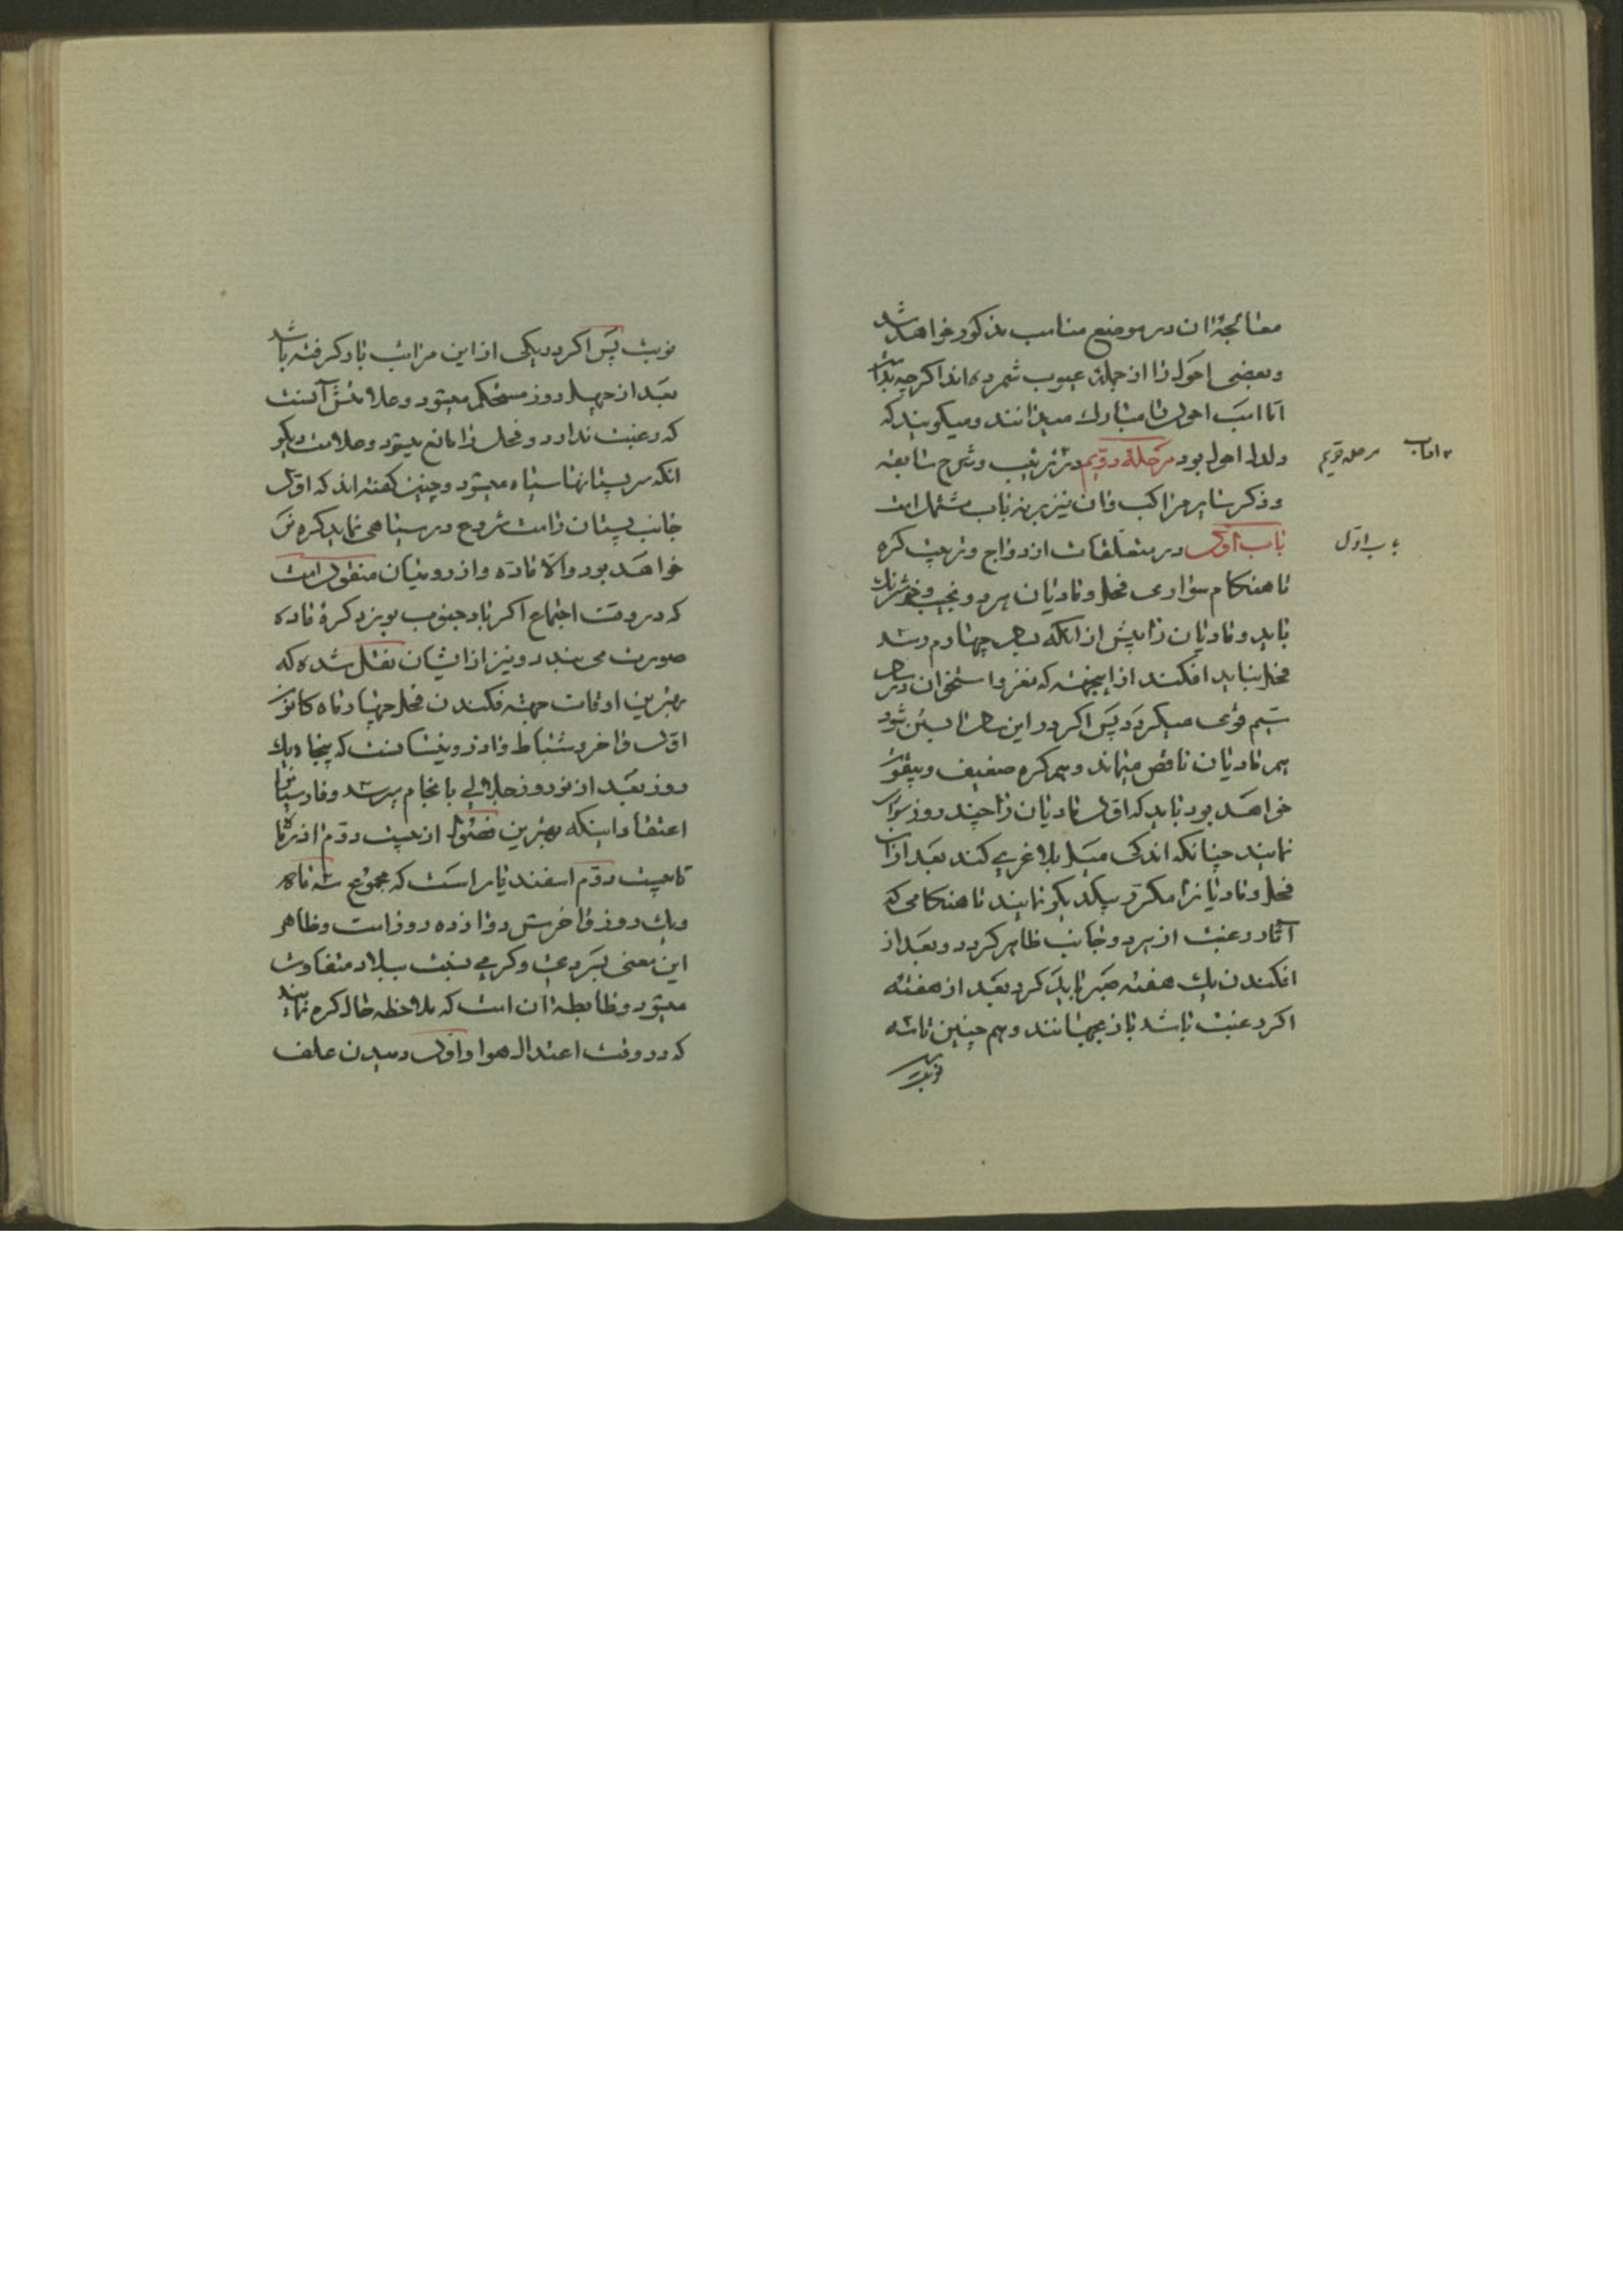 معالجۀ ان در موضع مناسب مذکور خواهد شد
و بعضی احول را از جملۀ عیوب شمرده اند اکرچه
اما اسب احول را مبارک میدانند و میکویند که
ولدل احول بود مرحلۀ دویم در ترتیب و شرح نتایجه
و ذکر سایر مراکب و ان نیز بر نه باب مشتمل است
باب اول در متعلقات ازدواج و تربیت کره
تا هنکام سواری فحل و مادیان هر دو نجیب و خوشرنک
باید و مادیان را پیش از انکه بسال چهارم رسد
فحل نباید افکند از اینجهته که مغز و استخوان در سال
سیم قوی میکردد پس اکر در این سال ابستن شود
هم مادیان ناقص میماند و هم کره ضعیف و بیقوت
خواهد بود باید که اول مادیان را چند روز سواری
نمایند چنانکه اندکی میل بلاغری کند بعد ازان
فحل و مادیانرا مکرر بیکدیکر نمایند تا هنکامی که
آثار رغبت از هر دو جانب ظاهر کردد و بعد از
افکندن یک هفته صبر باید کرد بعد از هفته
اکر رغبت باشد باز بجهانند و هم چنین تا سه
نوبت
مرحله دویم
باب اول
نوبت پس اکر در یکی از این مراتب بار کرفته باشد
بعد از چهل روز مستحکم میشود و علامتش آنست
که رغبت ندارد و فحل را مانع میشود و علامت دیکر
انکه سر پستانها سیاه میشود و چنین کفته اند که اول
جانب پستان راست شروع در سیاهی نماید کره نر
خواهد بود و الا ماده و از رومیان منقول است
که در وقت اجتماع اکر باد جنوب بوزد کرۀ ماده
صورت می بندد و نیز از ایشان نقل شده که
بهترین اوقات جهته فکندن فحل چهار ماه کانون
اول و اخر شباط و اذر و نیسانست که پنجاه یک
روز بعد از نوروز جلالی بانجام میرسد و فارسیانرا
اعتقاد اینکه بهترین فصول از بیست دوم اذر ماه
تا بیست دوم اسفندیار است که مجموع سه ماه
و یک روز و اخرش دوازده روز است و ظاهر
این معنی بسردی و کرمی نسبت ببلاد متفاوت
میشود و ظابطۀ ان است که ملاحظه حال کره نمایند
که در وقت اعتدال هوا و اول رسیدن علف